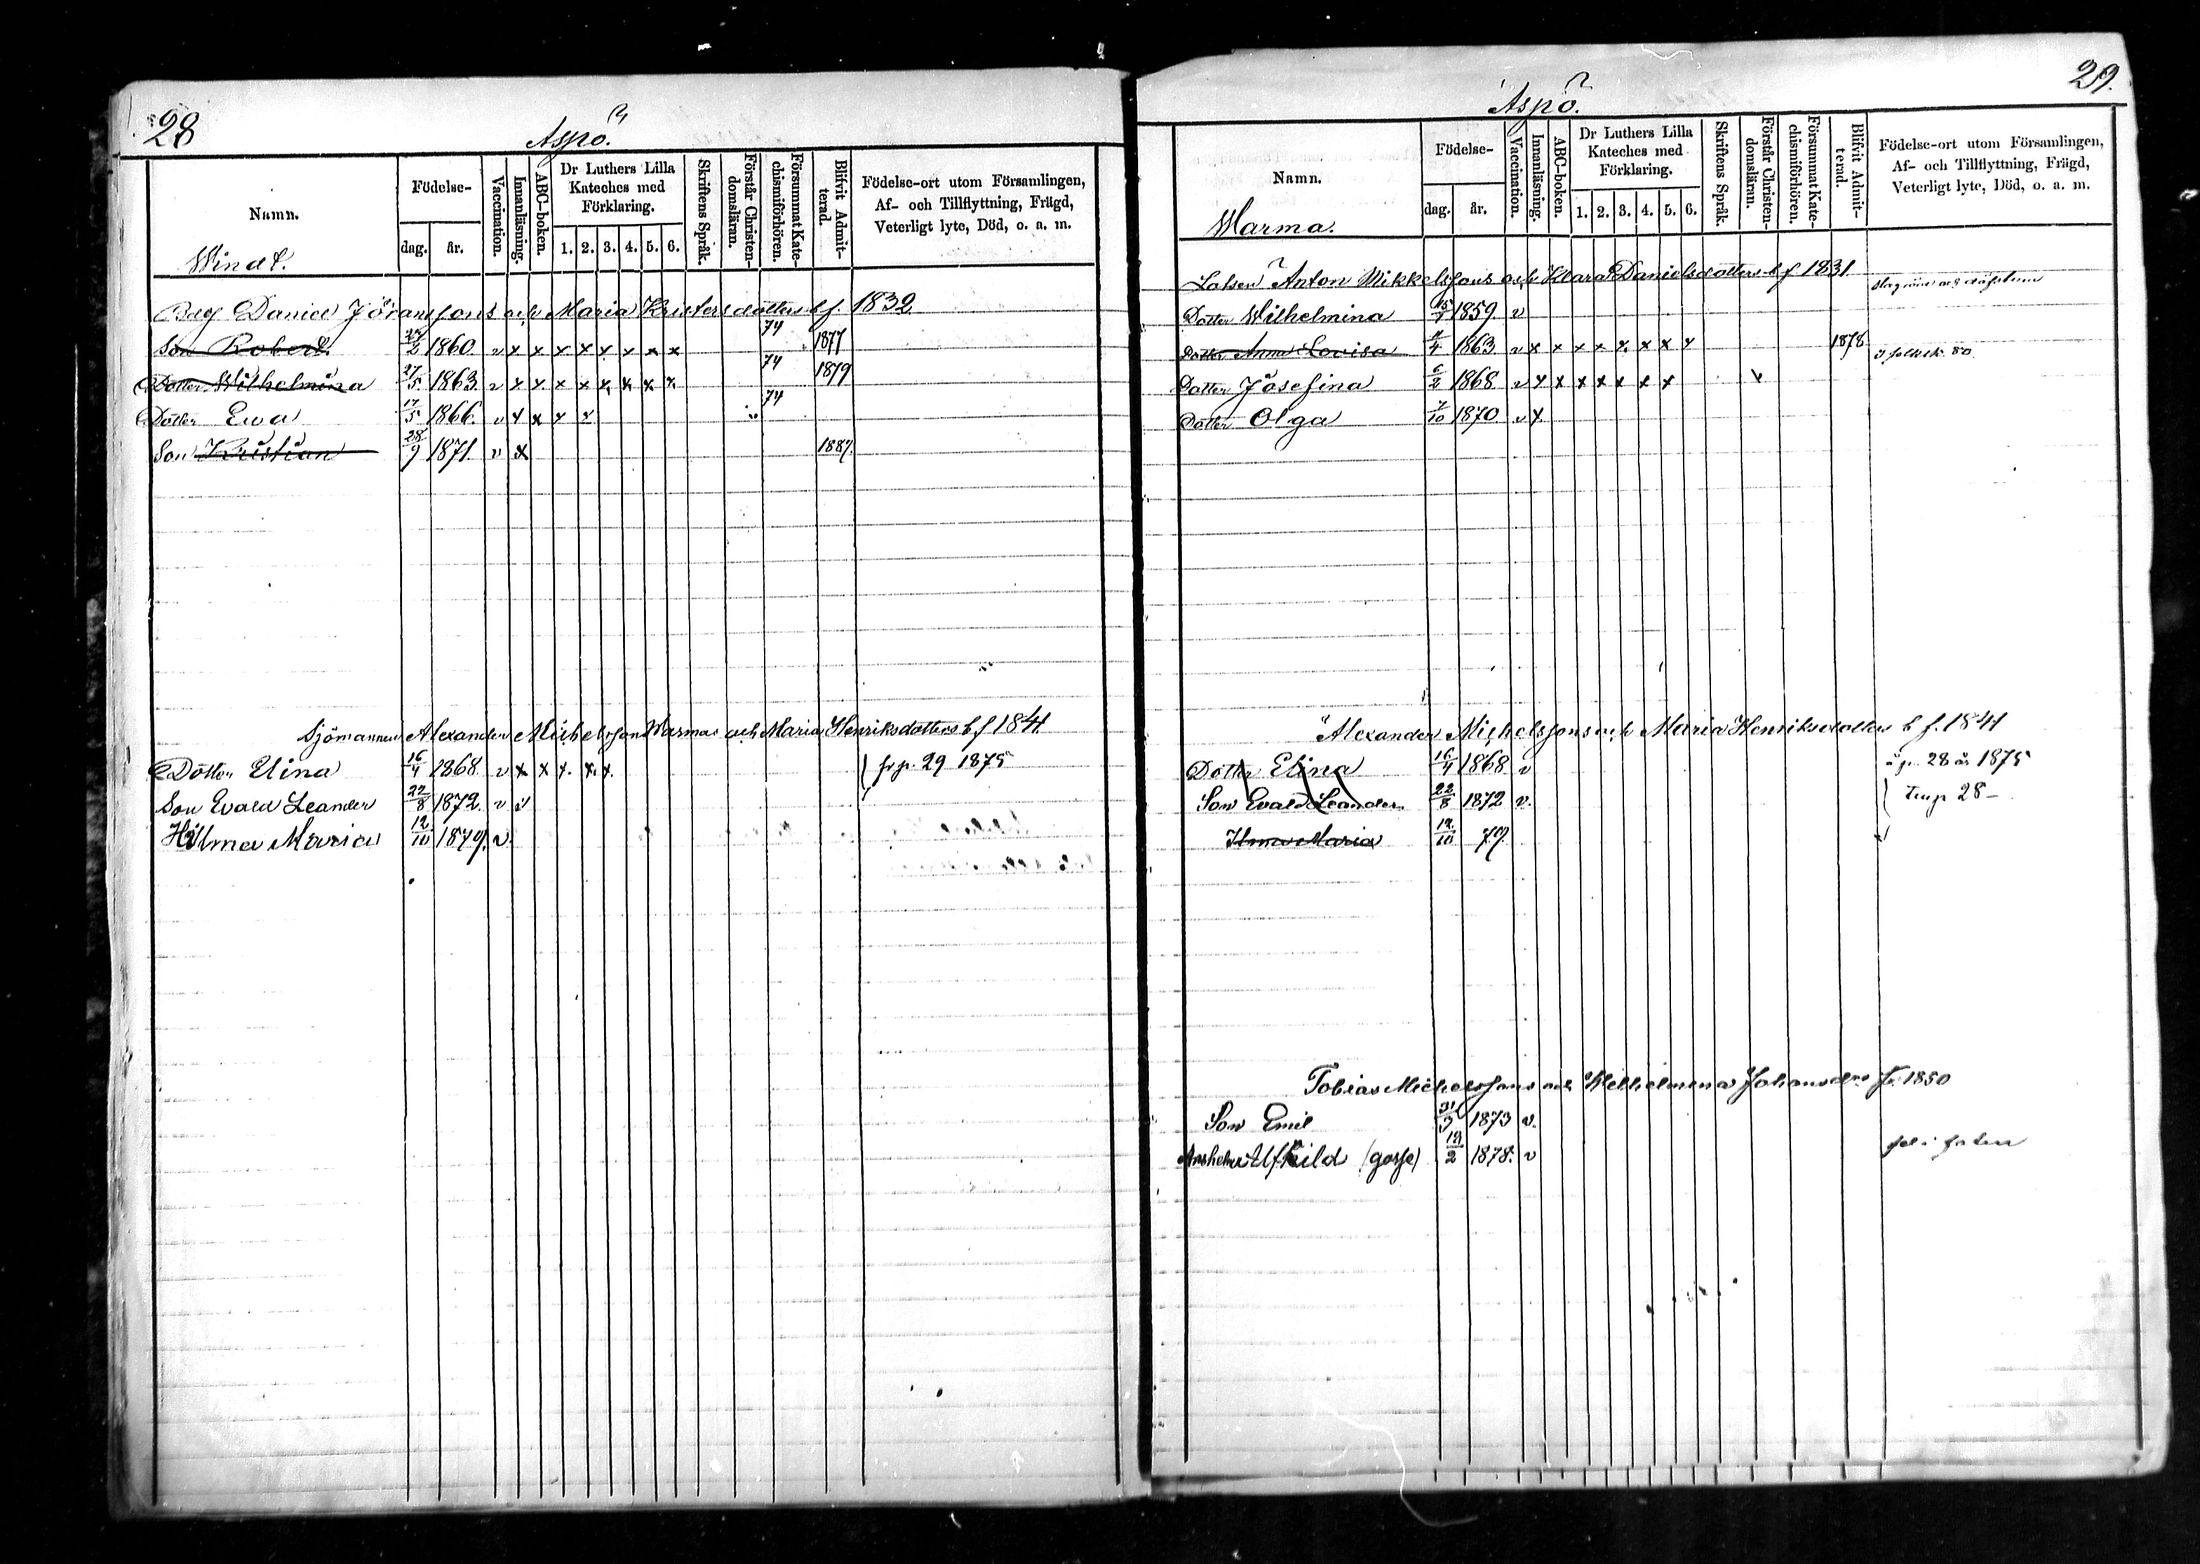 28
Aspö.
Namn.
Födelse-
dag.
år.
Vaccination.
Innanläsning.
ABC-boken.
Dr Luthers Lilla
Kateches med
Förklaring.
1. 2. 3. 4. 5. 6.
Skriftens Språk.
Förstår Christen-
domsläran.
Försummat Kate-
chismiförhören.
Blifvit Admit-
terad.
Födelse-ort utom Församlingen,
Af- och Tillflyttning, Frägd,
Veterligt lyte, Död, o. a. m.
Windt.
Daniel Jöranssons och Maria Kristersdotters b. f. 1832
Son Robert. 2 1860. v x x x x x x x x 74 1877
Dotter Wilhelmina 27/5 1863 v x x x x x x x x 74 1879
Dotter Ewa 17/5 1866. v x x x x 74
Son Kristian 28/9 1871. v x 1887.
Sjömannen Alexander Michelssons Warmas och Maria Henriksdotters b. f 1841.
Dotter Elina 16/4 1868. v x x x. x. x. fr p. 29 1875
Son Evald Leander 22/8 1872. v v
Hilma Maria 12/10 1879. v.
29.
Aspö.
Namn.
Födelse-
dag.
år.
Vaccination.
Innanläsning.
ABC-boken.
Dr Luthers Lilla
Kateches med
Förklaring.
1. 2. 3. 4. 5. 6.
Skriftens Språk.
Förstår Christen-
domsläran.
Försummat Kate-
chismiförhören.
Blifvit Admit-
terad.
Födelse-ort utom Församlingen,
Af- och Tillflyttning, Frägd,
Veterligt lyte, Död, o. a. m.
Warma.
Lotsen Anton Mikkelssons och Klara Danielsdotters b f 1831.
Dotter Wilhelmina 1859 v
Dotter Anna Lovisa 4 1863 v x x x x x x x x 1878 80
Dotter Josefina 6/2 1868 v x x x x x x x x
Dotter Olga 7/10 1870 v x.
Alexander Michelssons och Maria Henriksdotters b f. 1841
Dotter Elina 16/4 1868 v å p. 28 år 1875
Son Evald Leander 22/8 1872 v. t. p 28 –
Ilma Maria 12/10 79.
Tobias Michelssons och Wilhelmina Johansdrs f. 1850
Son Emil 31/3 1873 v.
Anshelm Alfhild (gosse) 19/2 1878. v